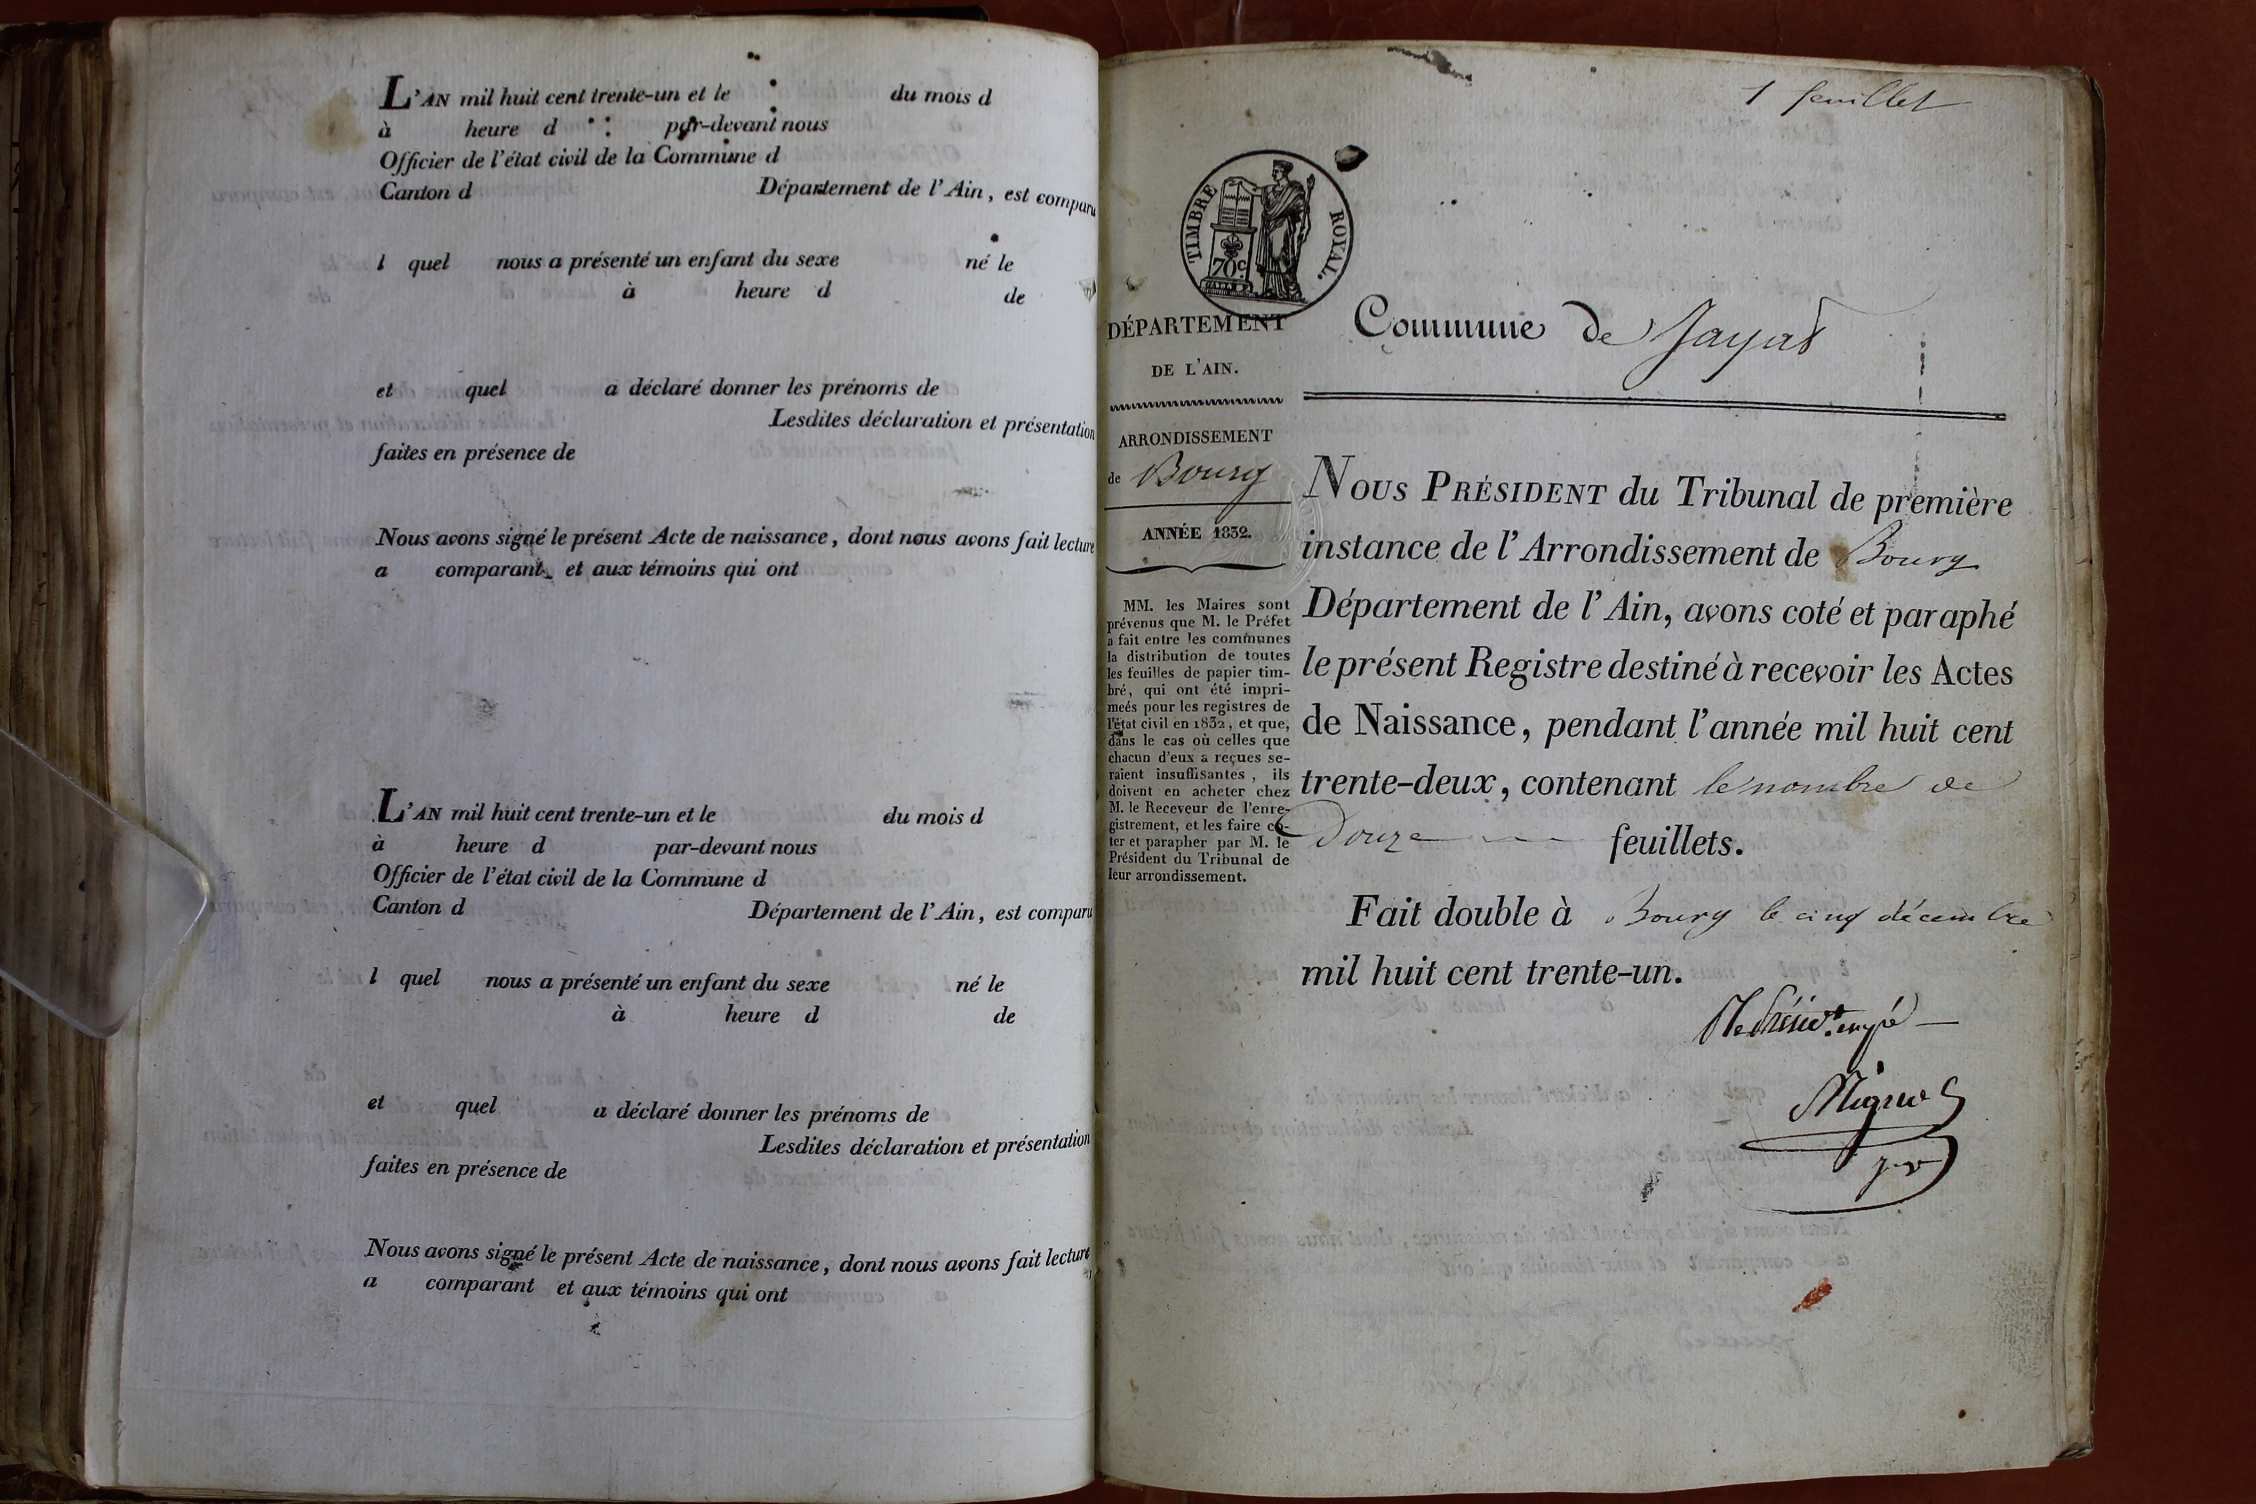 L'AN mil huit cent trente-un et le du mois d
à heure d par-devant nous
Officier de l'état civil de la Commune d
Canton d Département de l'Ain, est comparu
l quel nous a présenté un enfant du sexe né le
à heure d de
et quel a déclaré donner les prénoms de
Lesdites déclaration et présentation
faites en présence de
Nous avons signé le présent Acte de naissance, dont nous avons fait lecture
a comparant et aux témoins qui ont
L'AN mil huit cent trente-un et le du mois d
à heure d par-devant nous
Officier de l'état civil de la Commune d
Canton d Département de l'Ain, est comparu
l quel nous a présenté un enfant du sexe né le
à heure d de
et quel a déclaré donner les prénoms de
Lesdites déclaration et présentation
faites en présence de
Nous avons signé le présent Acte de naissance, dont nous avons fait lecture
a comparant et aux témoins qui ont
1 feuillet
TIMBRE ROYAL.
70c.
DÉPARTEMENT
DE L'AIN.
ARRONDISSEMENT
de Bourg
ANNÉE 1832.
MM. les Maires sont
prévenus que M. le Préfet
a fait entre les communes
la distribution de toutes
les feuilles de papier tim-
bré, qui ont été impri-
meés pour les registres de
l'état civil en 1832, et que,
dans le cas où celles que
chacun d'eux a reçues se-
raient insuffisantes, ils
doivent en acheter chez
M. le Receveur de l'enre-
gistrement, et les faire co-
ter et parapher par M. le
Président du Tribunal de
leur arrondissement.
Commune de Jayat
NOUS PRÉSIDENT du Tribunal de première
instance de l'Arrondissement de Bourg
Département de l'Ain, avons coté et paraphé
le présent Registre destiné à recevoir les Actes
de Naissance, pendant l'année mil huit cent
trente-deux, contenant le nombre de
Douze feuillets.
Fait double à Bourg le cinq décembre
mil huit cent trente-un.